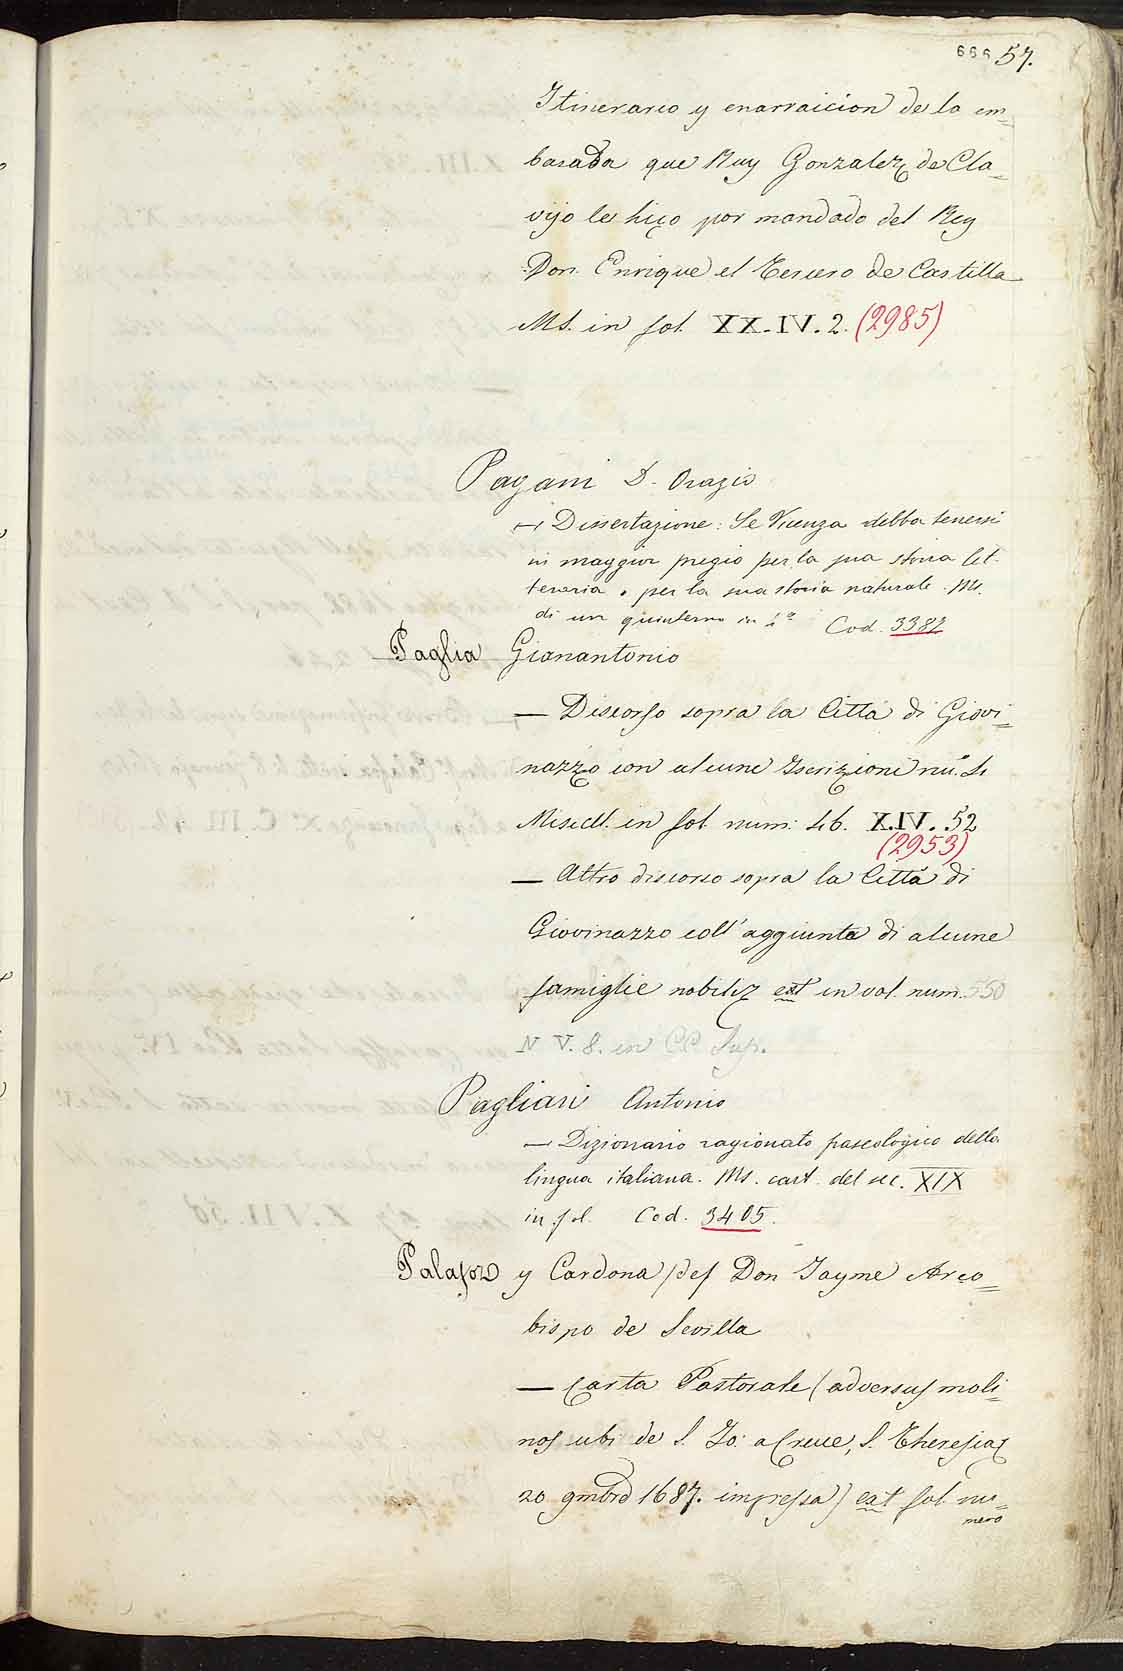 666 57.
Itinerario y enarraicion de la em=
baxada que Ruy Gonzalez de Cla=
vijo le hiço por mandado del Rey
Don Enrique el Tercero de Castilla
Ms. in fol. XX.IV.2. (2985)
Pagani D. Orazio
— Dissertazione: Se Vicenza debba tenersi
in maggior pregio per la sua storia let-
teraria o per la sua storia naturale. Ms.
di un quinterno in 4° Cod. 3382
Paglia Gianantonio
— Discorso sopra la Città di Giovi=
nazzo con alcune Iscrizioni
Miscell. in fol. num: 46. X.IV.52
(2953)
— Altro discorso sopra la Città di
Giovinazzo coll'aggiunta di alcune
famiglie nobili est in vol. num. 550
N V. 8. in CC Sup.
Pagliari Antonio
— Dizionario ragionato paseologico della
lingua italiana. Ms. cart. del sec. XIX
in fol. Cod. 3405.
Palafox y Cardona (de) Don Jayme Arço=
bispo de Sevilla
— Carta Pastorale (adversus moli=
nos ubi de S. Jo: a Cruce, S. Theresia
20 9mbrd 1687. impressa) est fol. nu=
mero